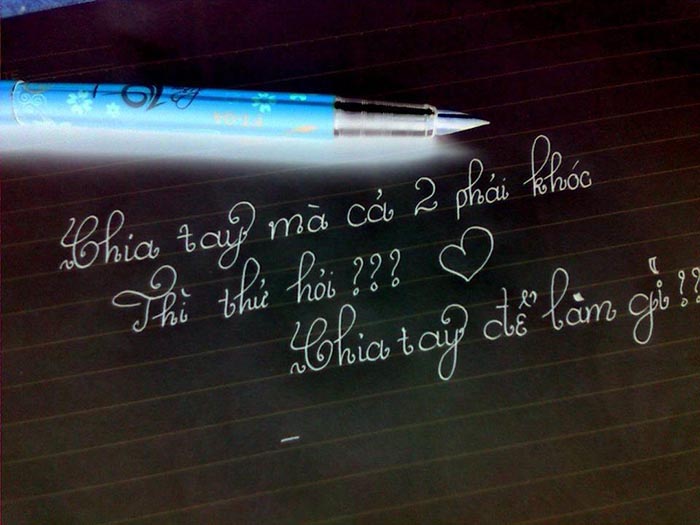 Chia tay mà cả 2 phải khóc
Thì thử hỏi ???
Chia tay để làm gì ??